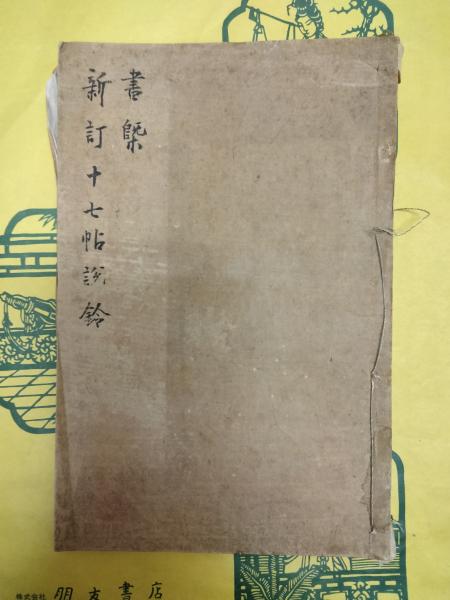 書槩
新訂十七帖說鈴
株式会社 朋友書店